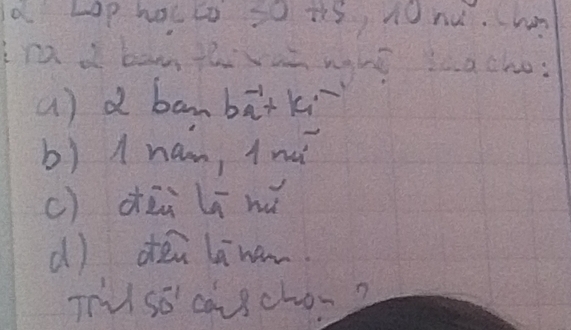 Lớp học có 30 HS, 10 nữ. Chọn
ra 2 bạn thi văn nghệ sao cho:
a) 2 bạn bất kì
b) 1 nam, 1 nữ
c) đều là nữ
d) đều là nam.
Tính số cách chọn?